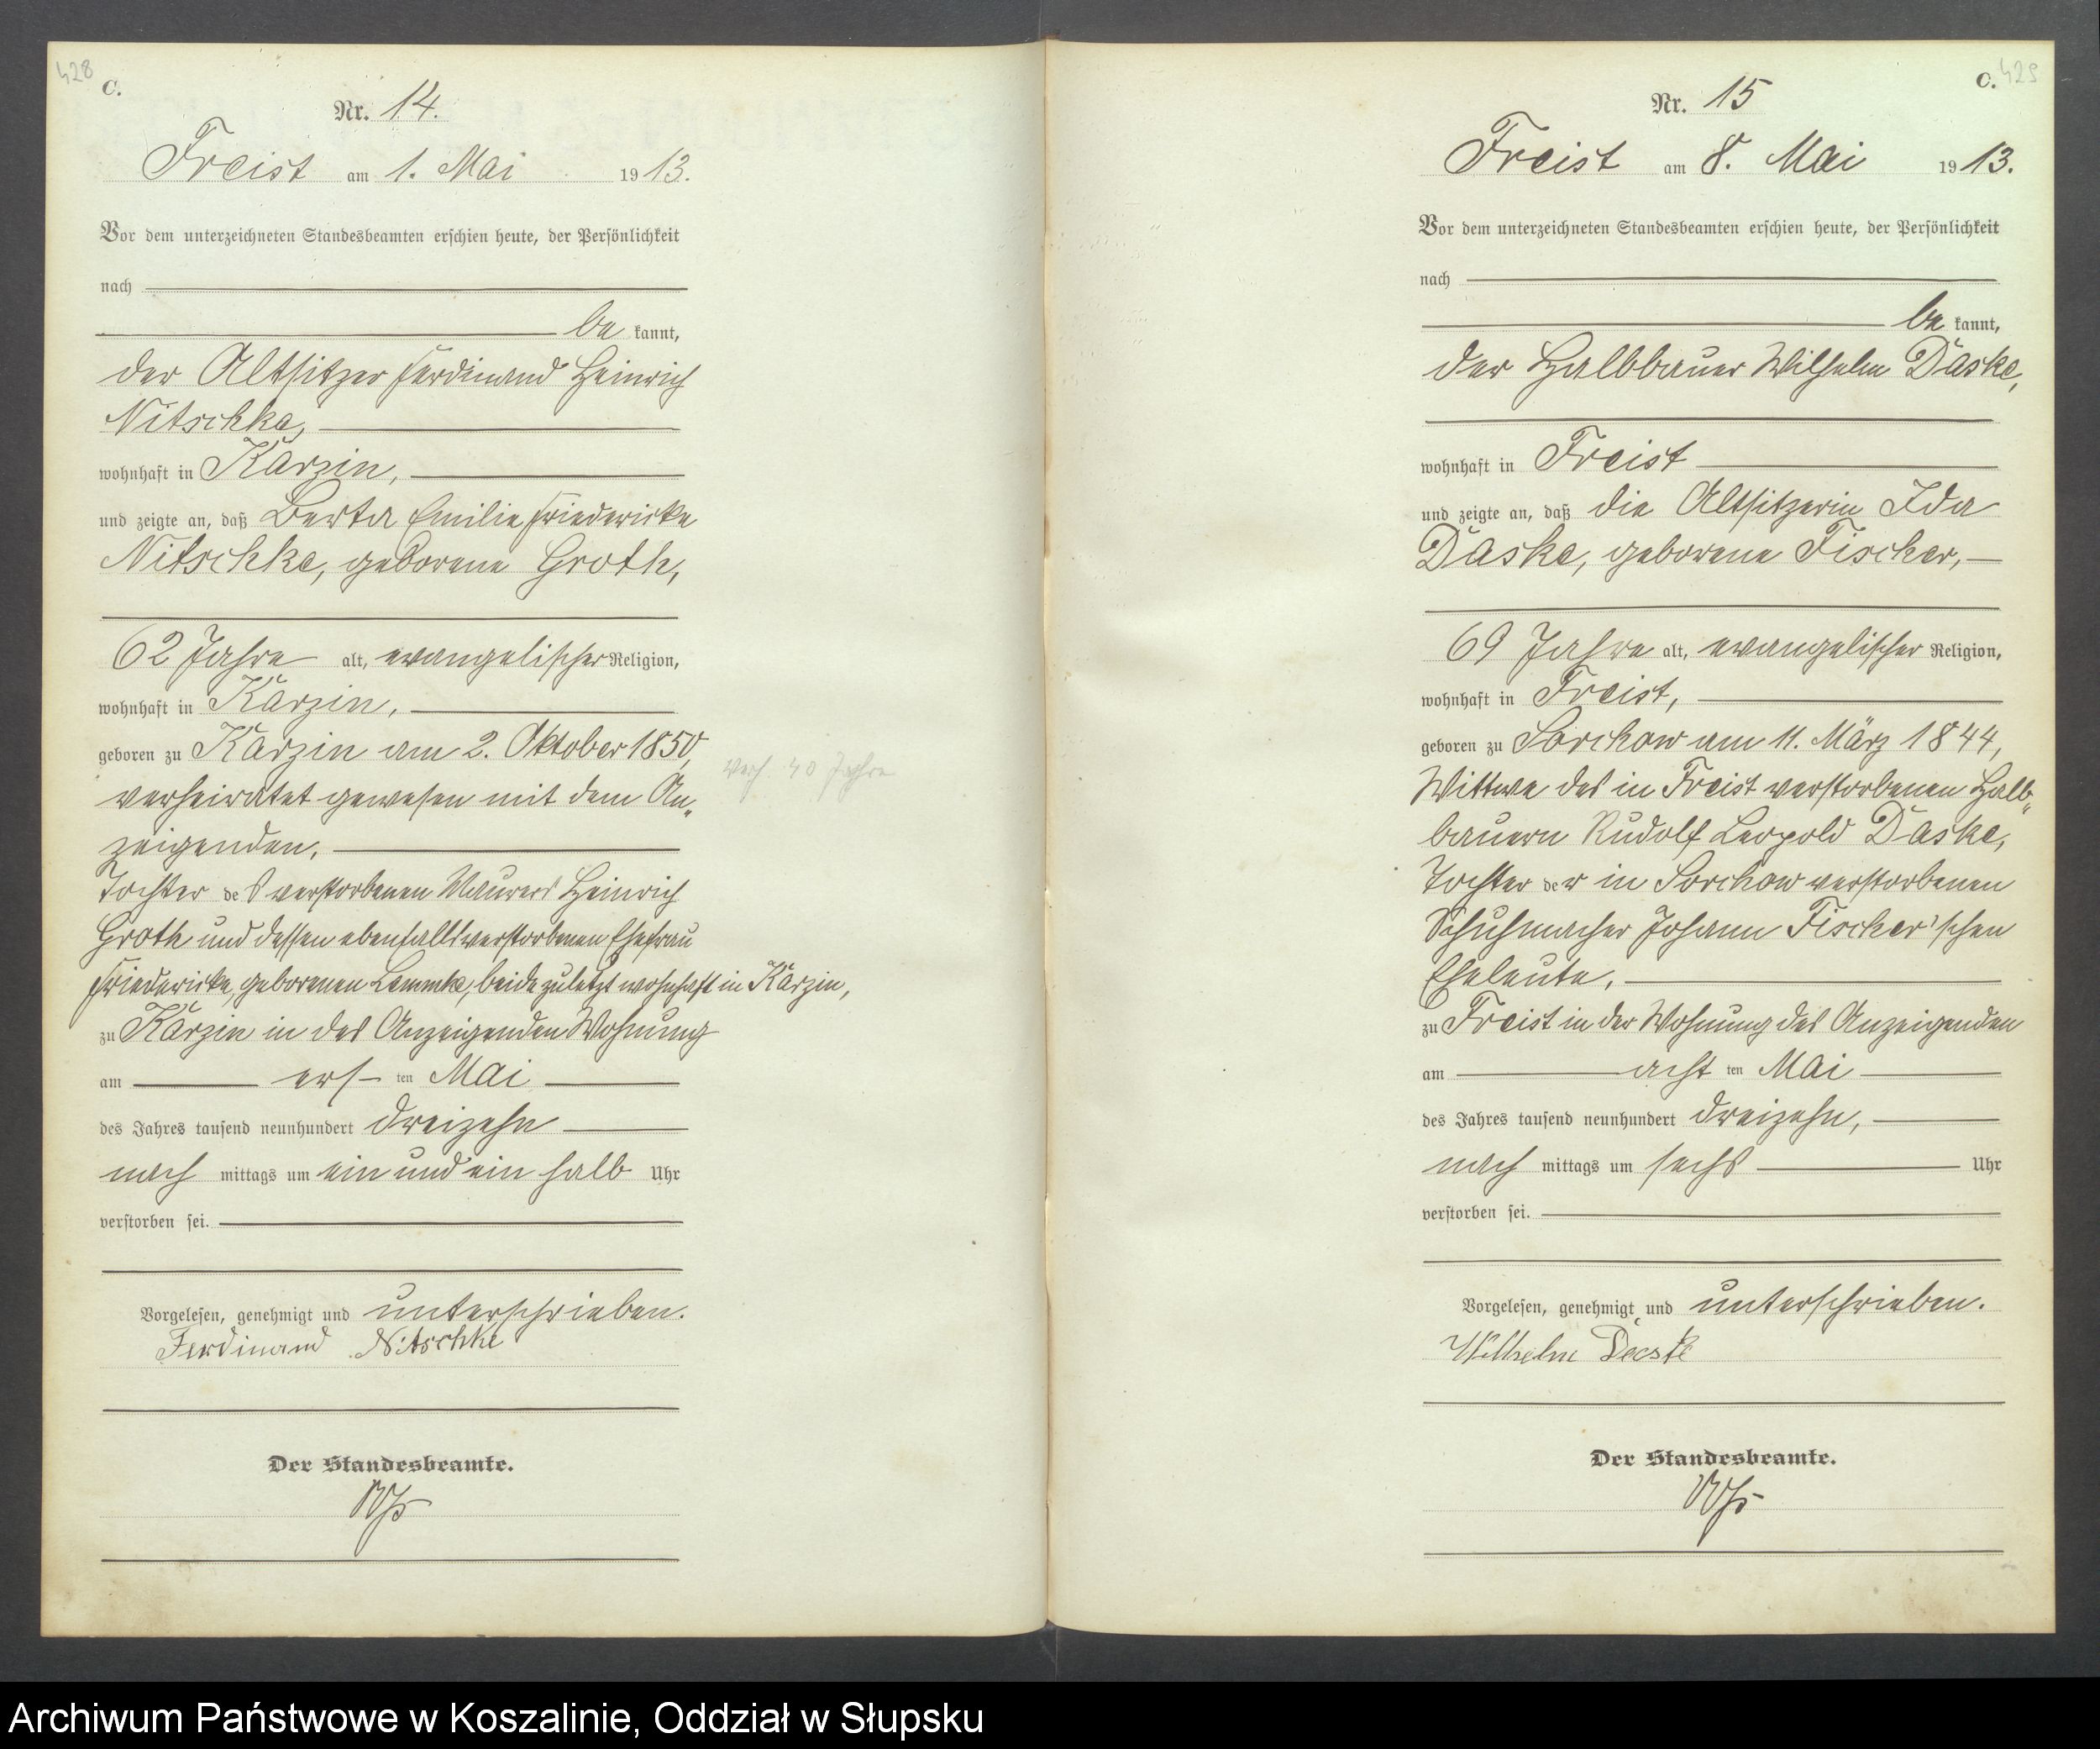 428
C.
Nr. 14.
Freist am 1. Mai 1913.
Vor dem unterzeichneten Standesbeamten erschien heute, der Persönlichkeit
nach
be kannt,
der Altsitzer Ferdinand Heinrich
Nitschke,
wohnhaft in Karzin,
und zeigte an, daß Berta Emilie Friedericke
Nitschke, geborene Groth,
62 Jahre alt, evangelischer Religion,
wohnhaft in Karzin,
geboren zu Karzin am 2. Oktober 1850,
verh. 40 Jahre
verheiratet gewesen mit dem An„
zeigenden,
Tochter des verstorbenen Maurers Heinrich
Groth und dessen ebenfalls verstorbenen Ehefrau
Friedericke, geborenen Lemmke, beide zuletzt wohnhaft in Karzin,
zu Karzin in des Anzeigenden Wohnung
am ers- ten Mai
des Jahres tausend neunhundert dreizehn
nach mittags um ein und ein halb Uhr
verstorben sei.
Vorgelesen, genehmigt und unterschrieben.
Ferdinand Nitschke
Der Standesbeamte.
C. 429
Nr. 15
Freist am 8. Mai 1913.
Vor dem unterzeichneten Standesbeamten erschien heute, der Persönlichkeit
nach
be kannt,
der Halbbauer Wilhelm Daske,
wohnhaft in Freist
und zeigte an, daß die Altsitzerin Ida
Daske, geborene Fischer,
69 Jahre alt, evangelischer Religion,
wohnhaft in Freist,
geboren zu Sorchow am 11. März 1844,
Wittwe des in Freist verstorbenen Halb„
bauern Rudolf Leopold Daske,
Tochter der in Sorchow verstorbenen
Schuhmacher Johann Fischer'schen
Eheleute,
zu Freist in der Wohnung des Anzeigenden
am acht ten Mai
des Jahres tausend neunhundert dreizehn,
nach mittags um sechs Uhr
verstorben sei.
Vorgelesen, genehmigt und unterschrieben.
Wilhelm Daske
Der Standesbeamte.
Archiwum Państwowe w Koszalinie, Oddział w Słupsku